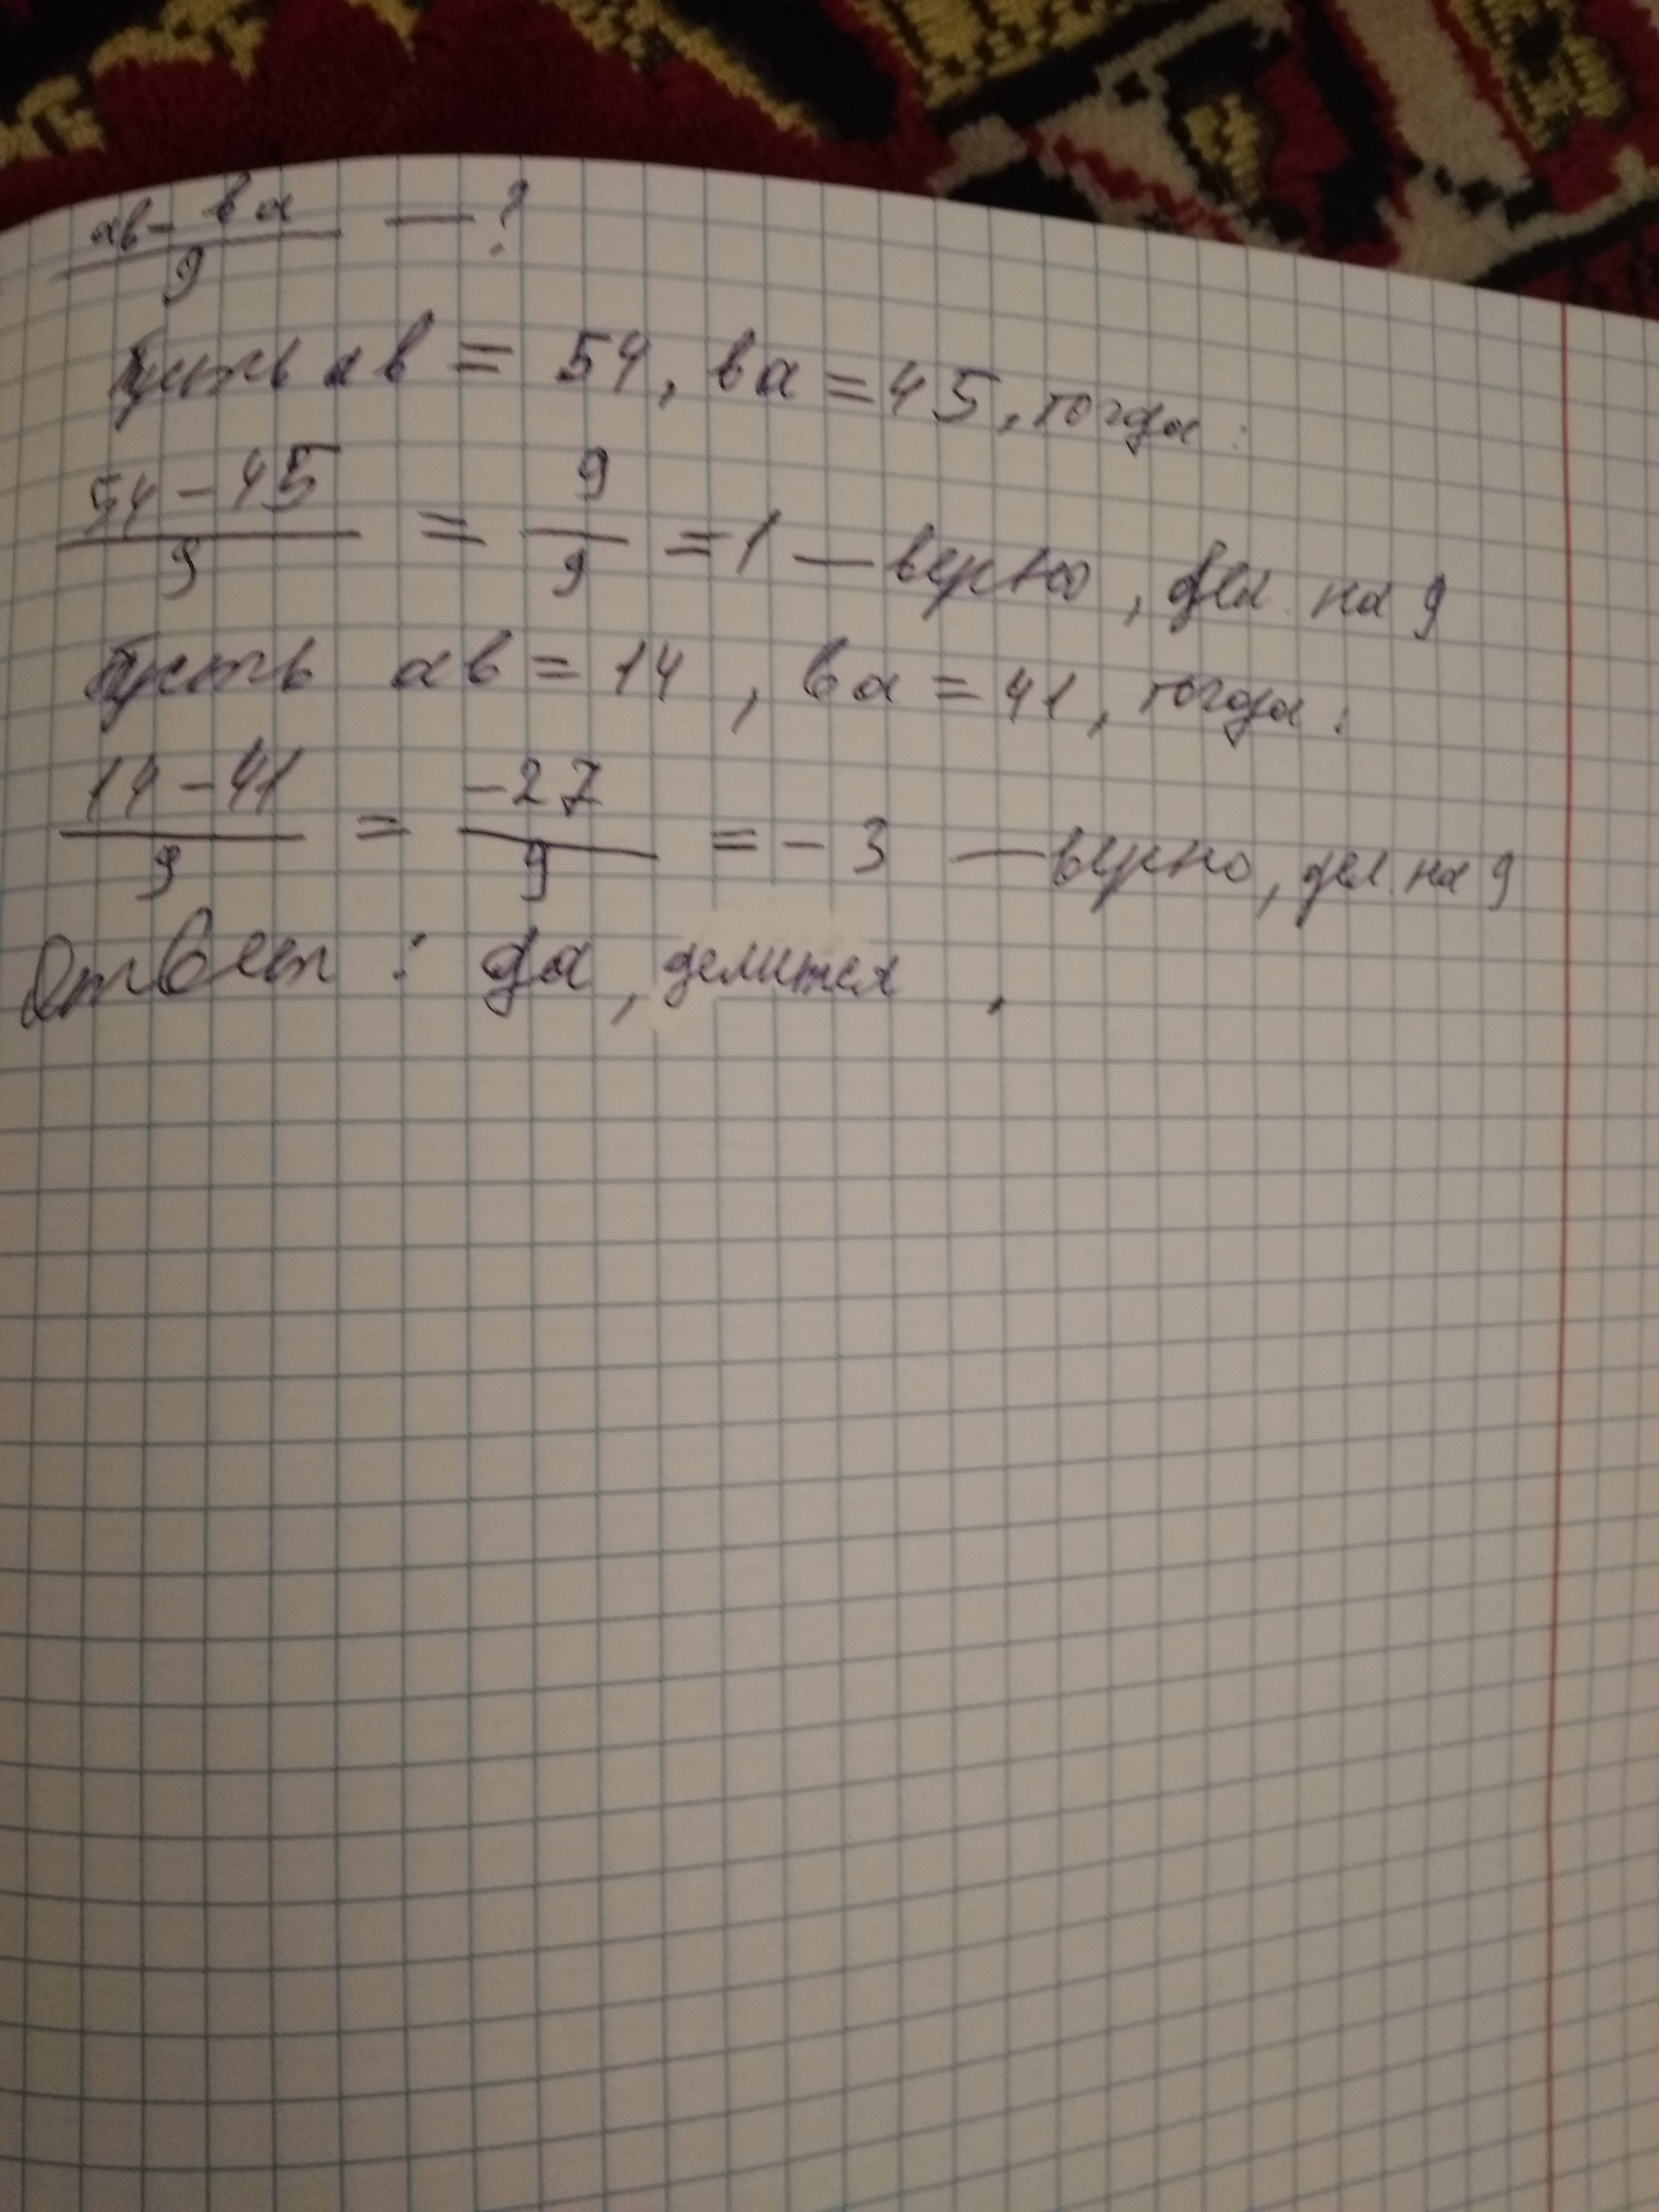 ав - ва / 9 — ?
Пусть ав = 54, ва = 45, тогда:
54 - 45 / 9 = 9 / 9 = 1 — верно, дел. на 9
Пусть ав = 14, ва = 41, тогда:
14 - 41 / 9 = -27 / 9 = - 3 — верно, дел. на 9
Ответ: да, делится.